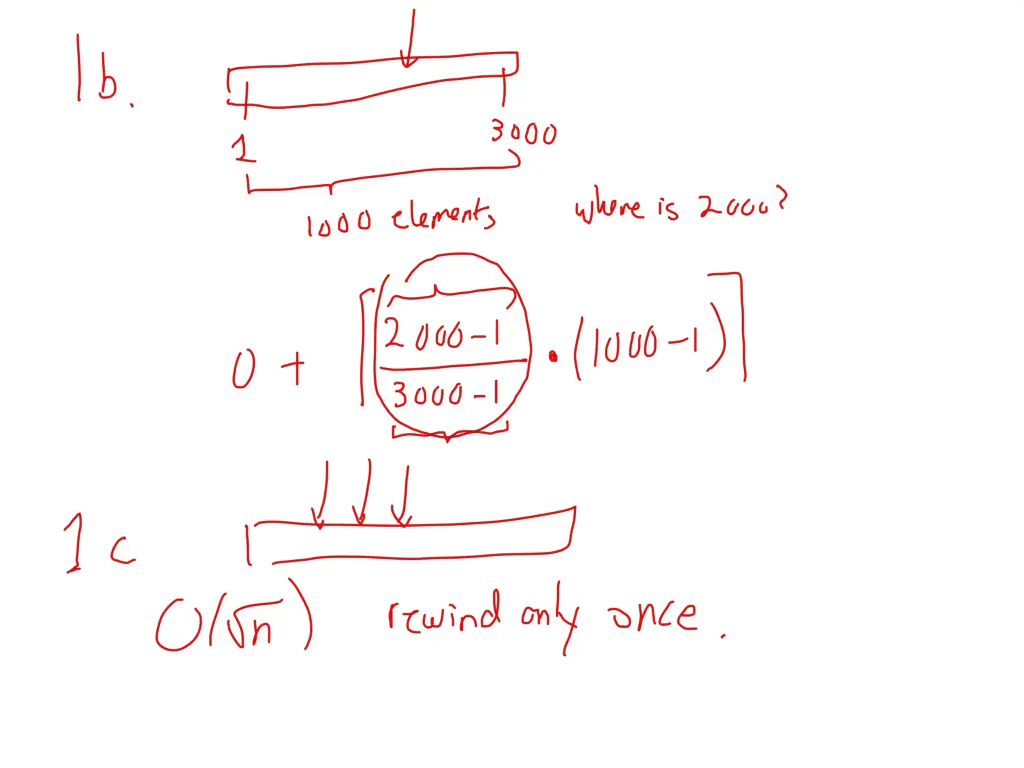 1b.
1 3000
1000 elements where is 2000?
0 + ⌈(2000-1 / 3000-1) · (1000-1)⌉
1c
O(√n) rewind only once.